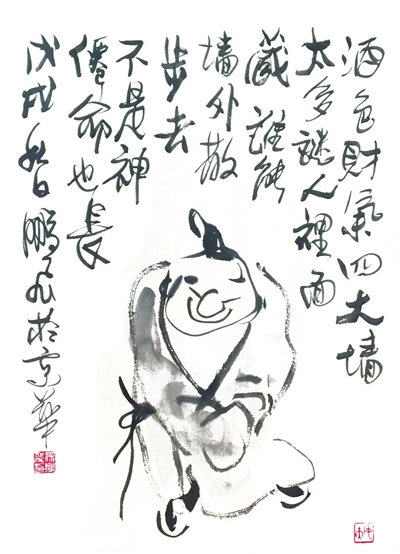 酒色財氣四大墙
太多謎人裡面
藏誰能
墙外散
步去
不是神
僊命也長
戊戌秋日鵬飛於京華